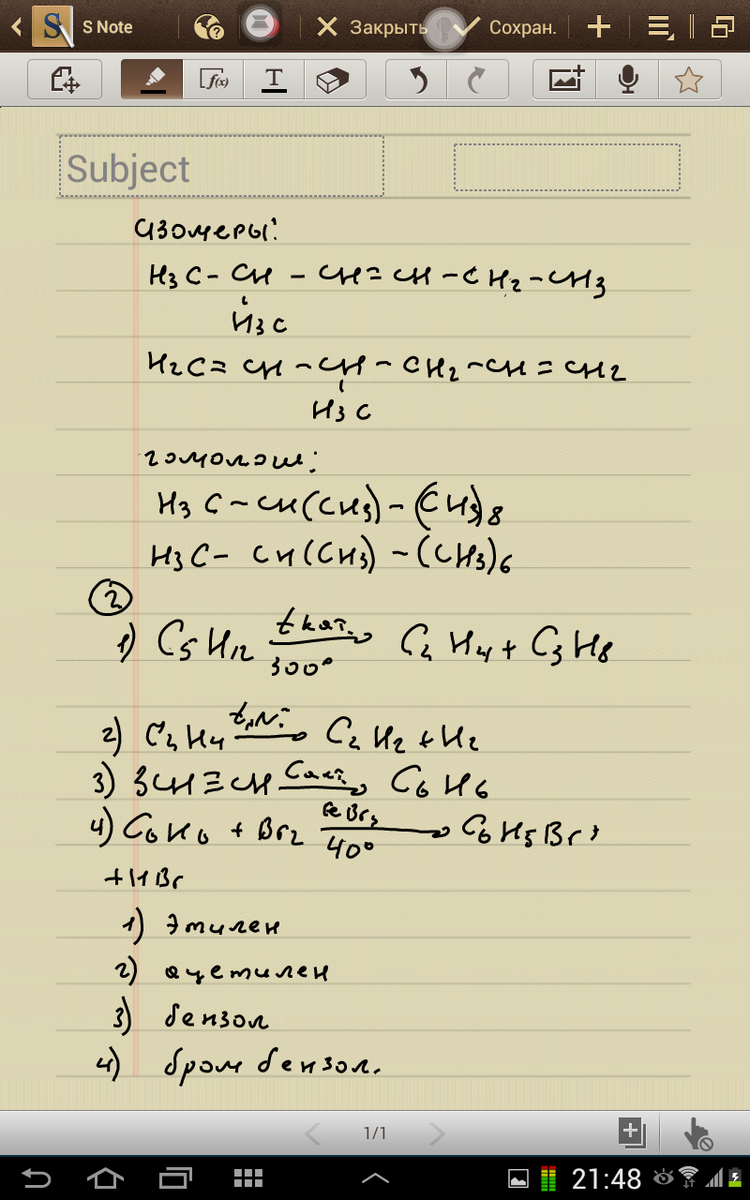 S Note
Закрыть
Сохран.
f(x)
T
Subject
изомеры:
H3C - CH - CH = CH - CH2 - CH3
H3C
H2C = CH - CH - CH2 - CH = CH2
H3C
гомологи:
H3C - CH(CH3) - (CH3)8
H3C - CH(CH3) - (CH3)6
2
1) C5H12 t кат. 300° → C2H4 + C3H8
2) C2H4 t, Ni → C2H2 + H2
3) 3CH ≡ CH C акт. → C6H6
4) C6H6 + Br2 FeBr3 40° → C6H5Br +
+ HBr
1) этилен
2) ацетилен
3) бензол
4) бром бензол.
1/1
21:48